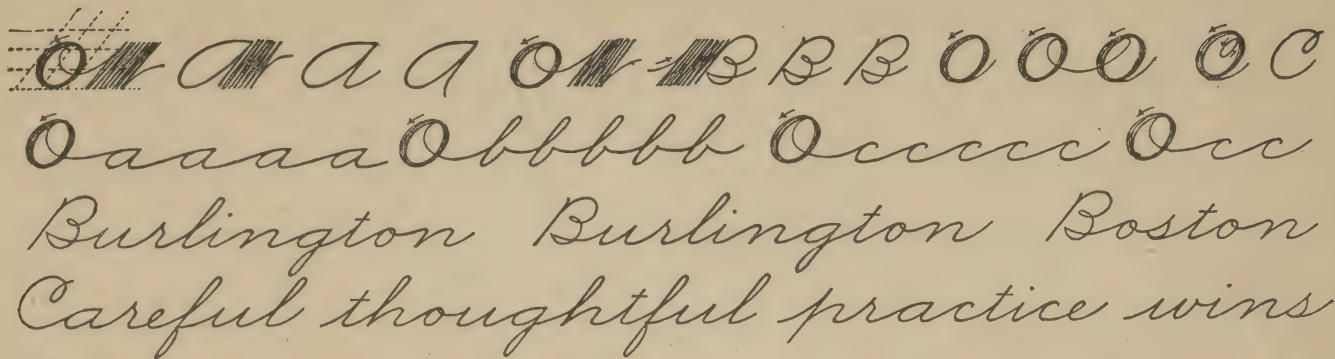 O A A A O B B B O O O O C
O a a a a O b b b b b O c c c c c O c c
Burlington Burlington Boston
Careful thoughtful practice wins